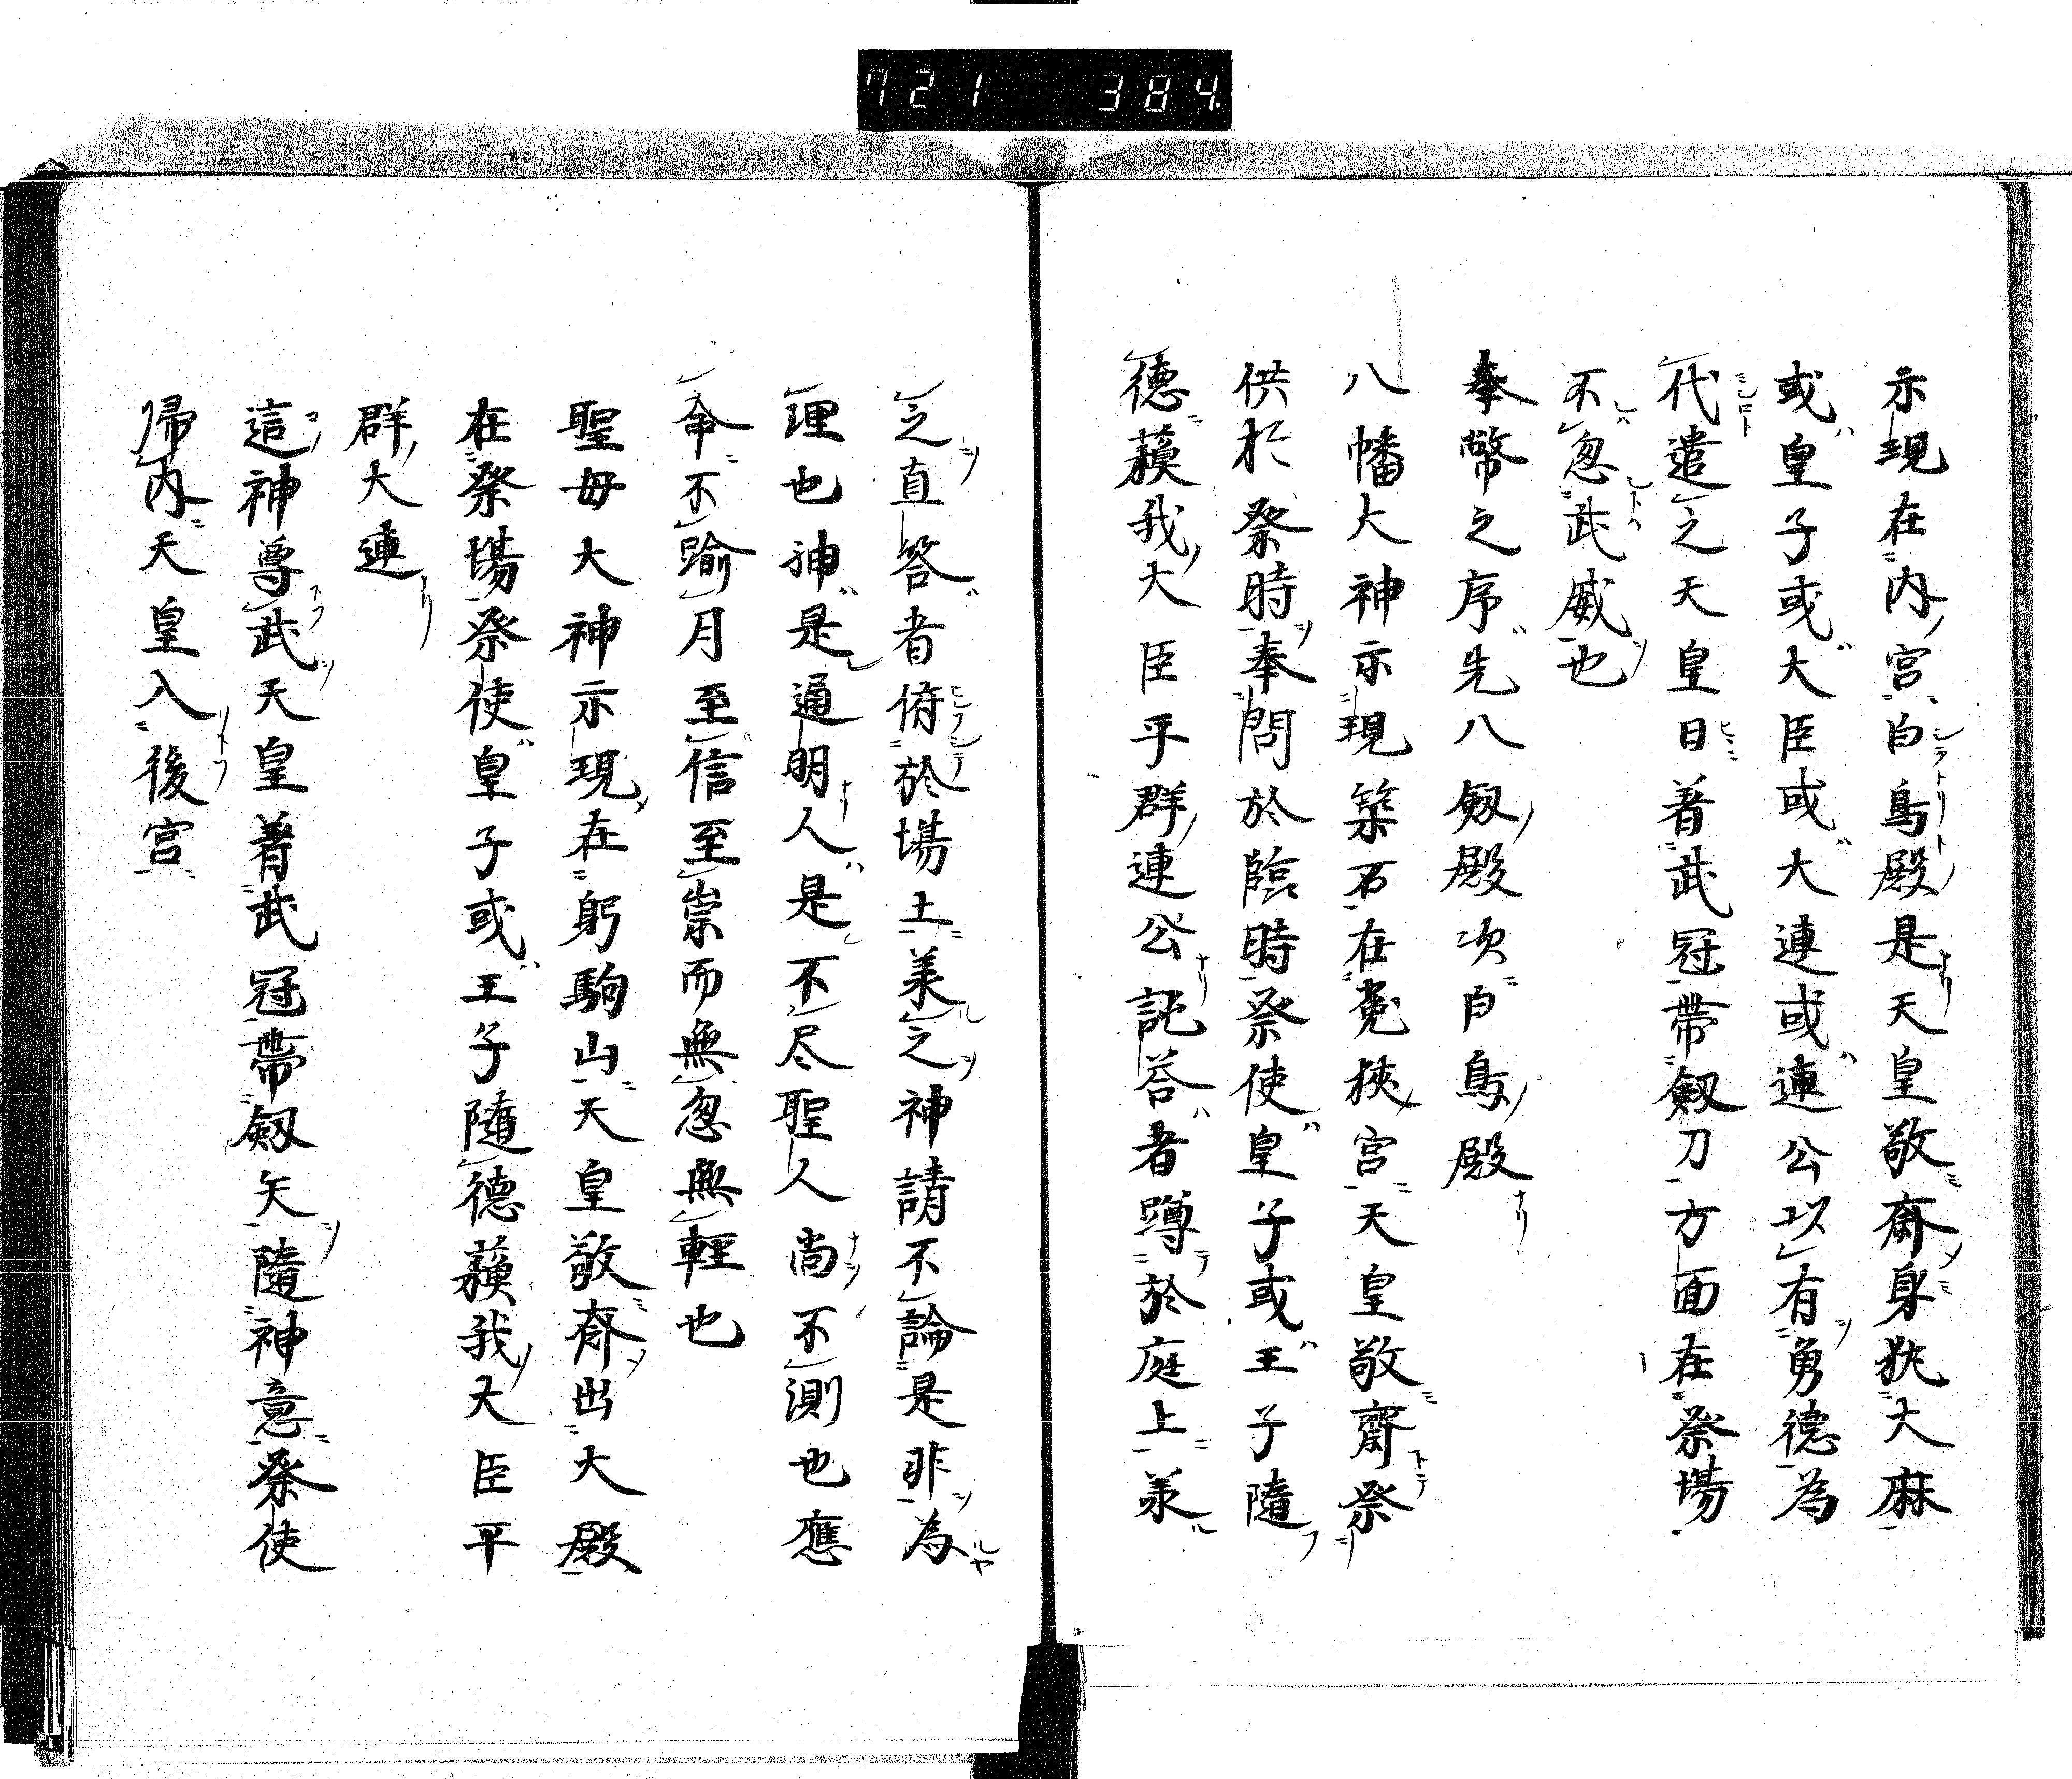 721 384
示現在内宮白鳥殿是天皇敬齋身狄大麻
或皇子或大臣或大連或連公以有勇德為
代遣之天皇日著武冠帶劔刀方面在祭場
不忽武威也
奉幣之序先八劔殿次白鳥殿
八幡大神示現築石在菟狹宮天皇敬齋祭
供於祭時奉問於臨時祭使皇子或王子隨
德蘓我大臣平群連公詫答者蹲於庭上羕
之直答者俯於場土羕之神請不論是非為
理也神是通明人是不尽聖人尚不測也應
年不踰月至信至崇而無忽無輕也
聖毋大神示現在躬駒山天皇敬齊出大殿
在祭場祭使皇子或王子隨德蘓我大臣平
群大連
這神尊武天皇著武冠帶劔矢隨神意祭使
帰内天皇入後宮